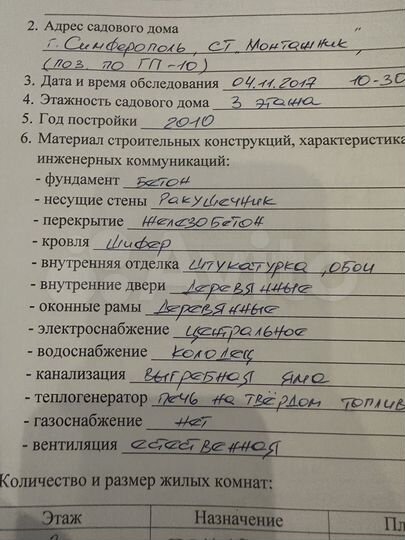 2. Адрес садового дома
г. Симферополь, СТ "Монтажник",
(поз. по ГП-10)
3. Дата и время обследования 04.11.2017 10-30
4. Этажность садового дома 3 этажа
5. Год постройки 2010
6. Материал строительных конструкций, характеристика
инженерных коммуникаций:
- фундамент Бетон
- несущие стены Ракушечник
- перекрытие Железобетон
- кровля Шифер
- внутренняя отделка Штукатурка, обои
- внутренние двери Деревянные
- оконные рамы Деревянные
- электроснабжение центральное
- водоснабжение колодец
- канализация выгребная яма
- теплогенератор печь на твёрдом топлив
- газоснабжение нет
- вентиляция естественная
Количество и размер жилых комнат:
Этаж Назначение Пл